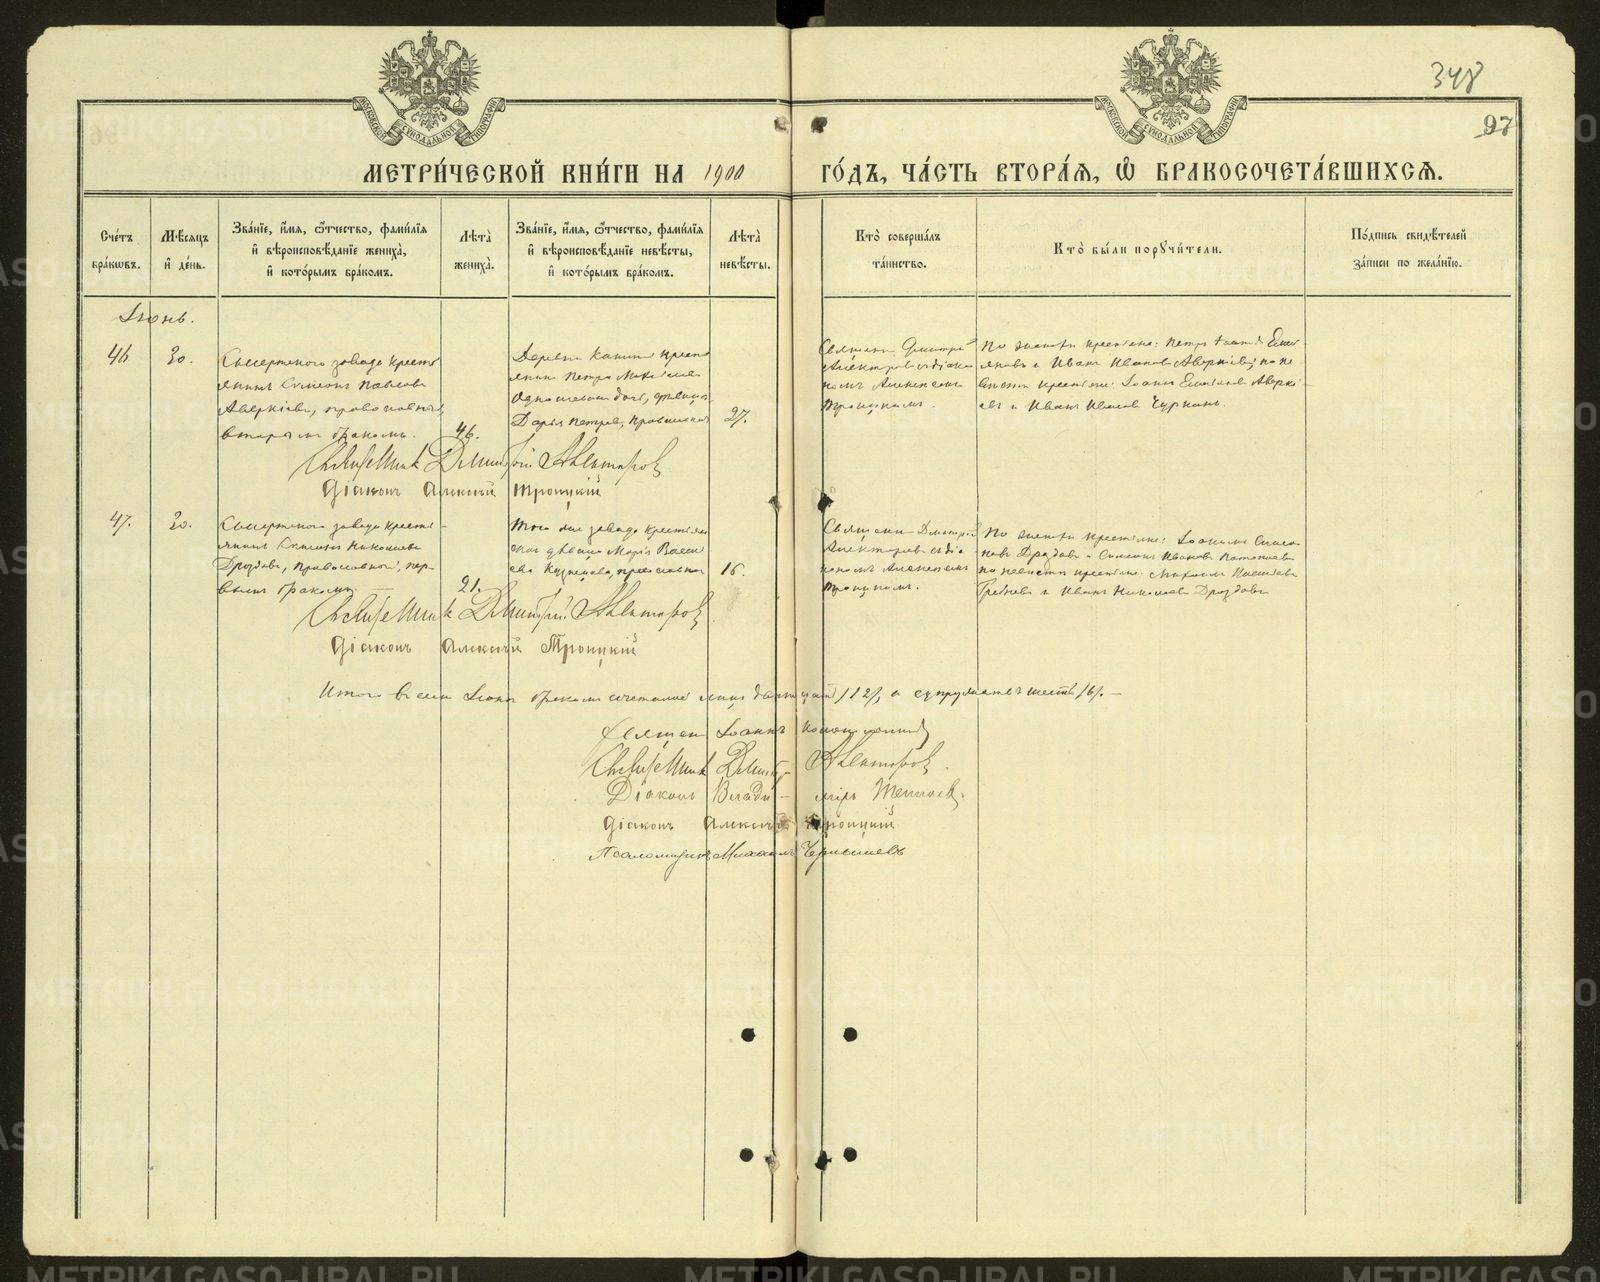 348
97
МОСКОВСКОЙ СУНОДАЛЬНОЙ ТИПОГРАФІИ
МОСКОВСКОЙ СУНОДАЛЬНОЙ ТИПОГРАФІИ
МЕТРИ́ЧЕСКОЙ КНИ́ГИ НА 1900 ГО́ДЪ, ЧА́СТЬ ВТОРА́Я, Ѽ БРАКОСОЧЕТА́ВШИХСЯ.
Сче́тъ бра́кѡвъ.
Мѣ́сяцъ и҆ де́нь.
Зва́нїе, и҆́мя, ѻ҆́тчество, фами́лїя и҆ вѣроисповѣ́данїе жениха̀, и҆ кото́рымъ бра́комъ.
Лѣта̀ жениха̀.
Зва́нїе, и҆́мя, ѻ҆́тчество, фами́лїя и҆ вѣроисповѣ́данїе невѣ́сты, и҆ кото́рымъ бра́комъ.
Лѣта̀ невѣ́сты.
Кто̀ соверша́лъ та́инство.
Кто̀ бы́ли порꙋчи́тели.
По́дпись свидѣ́телей за́писи по жела́нїю.
Іюнь.
46
30.
Сысертскаго завода кресть
янинъ Симеонъ Павловъ
Аверкіевъ, православный,
вторымъ бракомъ.
46.
Деревни
Петра
дочь, дѣвица
Дарья Петрова, православн
27.
Священн Дмитрій
Алекторовъ съ діако
номъ Алексѣемъ
Троицкимъ.
По женихѣ крестьяне: Петръ
Иванъ Ивановъ Аверкіевъ; по не
вѣстѣ крестьяне: Іоаннъ Аверкі
евъ и Иванъ Ивановъ
Священникъ Дмитрій Алекторовъ
Діаконъ Алексій Троицкій
47.
30.
Сысертскаго завода кресть-
янинъ Симеонъ Николаевъ
Дроздовъ, православный, пер-
вымъ бракомъ.
21.
Того же завода крестьян
ская дѣвица Марія Васи
ева Кузнецова, православная
16.
Священн Дмитрій
Алекторовъ съ діа
кономъ Алексѣемъ
Троицкимъ.
По женихѣ крестьяне: Іоакимъ
Дроздовъ и Симеонъ Ивановъ
по невѣстѣ крестьяне: Михаилъ
и Иванъ Николаевъ Дроздовъ
Священникъ Дмитрій Алекторовъ
Діаконъ Алексій Троицкій
Итого въ семъ Іюнѣ бракомъ сочетано лицъ двенадцать /12/, а супружествъ шесть /6/. –
Священ Іоаннъ
Священникъ Дмитр- Алекторовъ.
Діаконъ Влади- міръ
Діаконъ Алексій Троицкій
Псаломщикъ Михаилъ Чернышевъ
METRIKI.GASO-URAL.RU